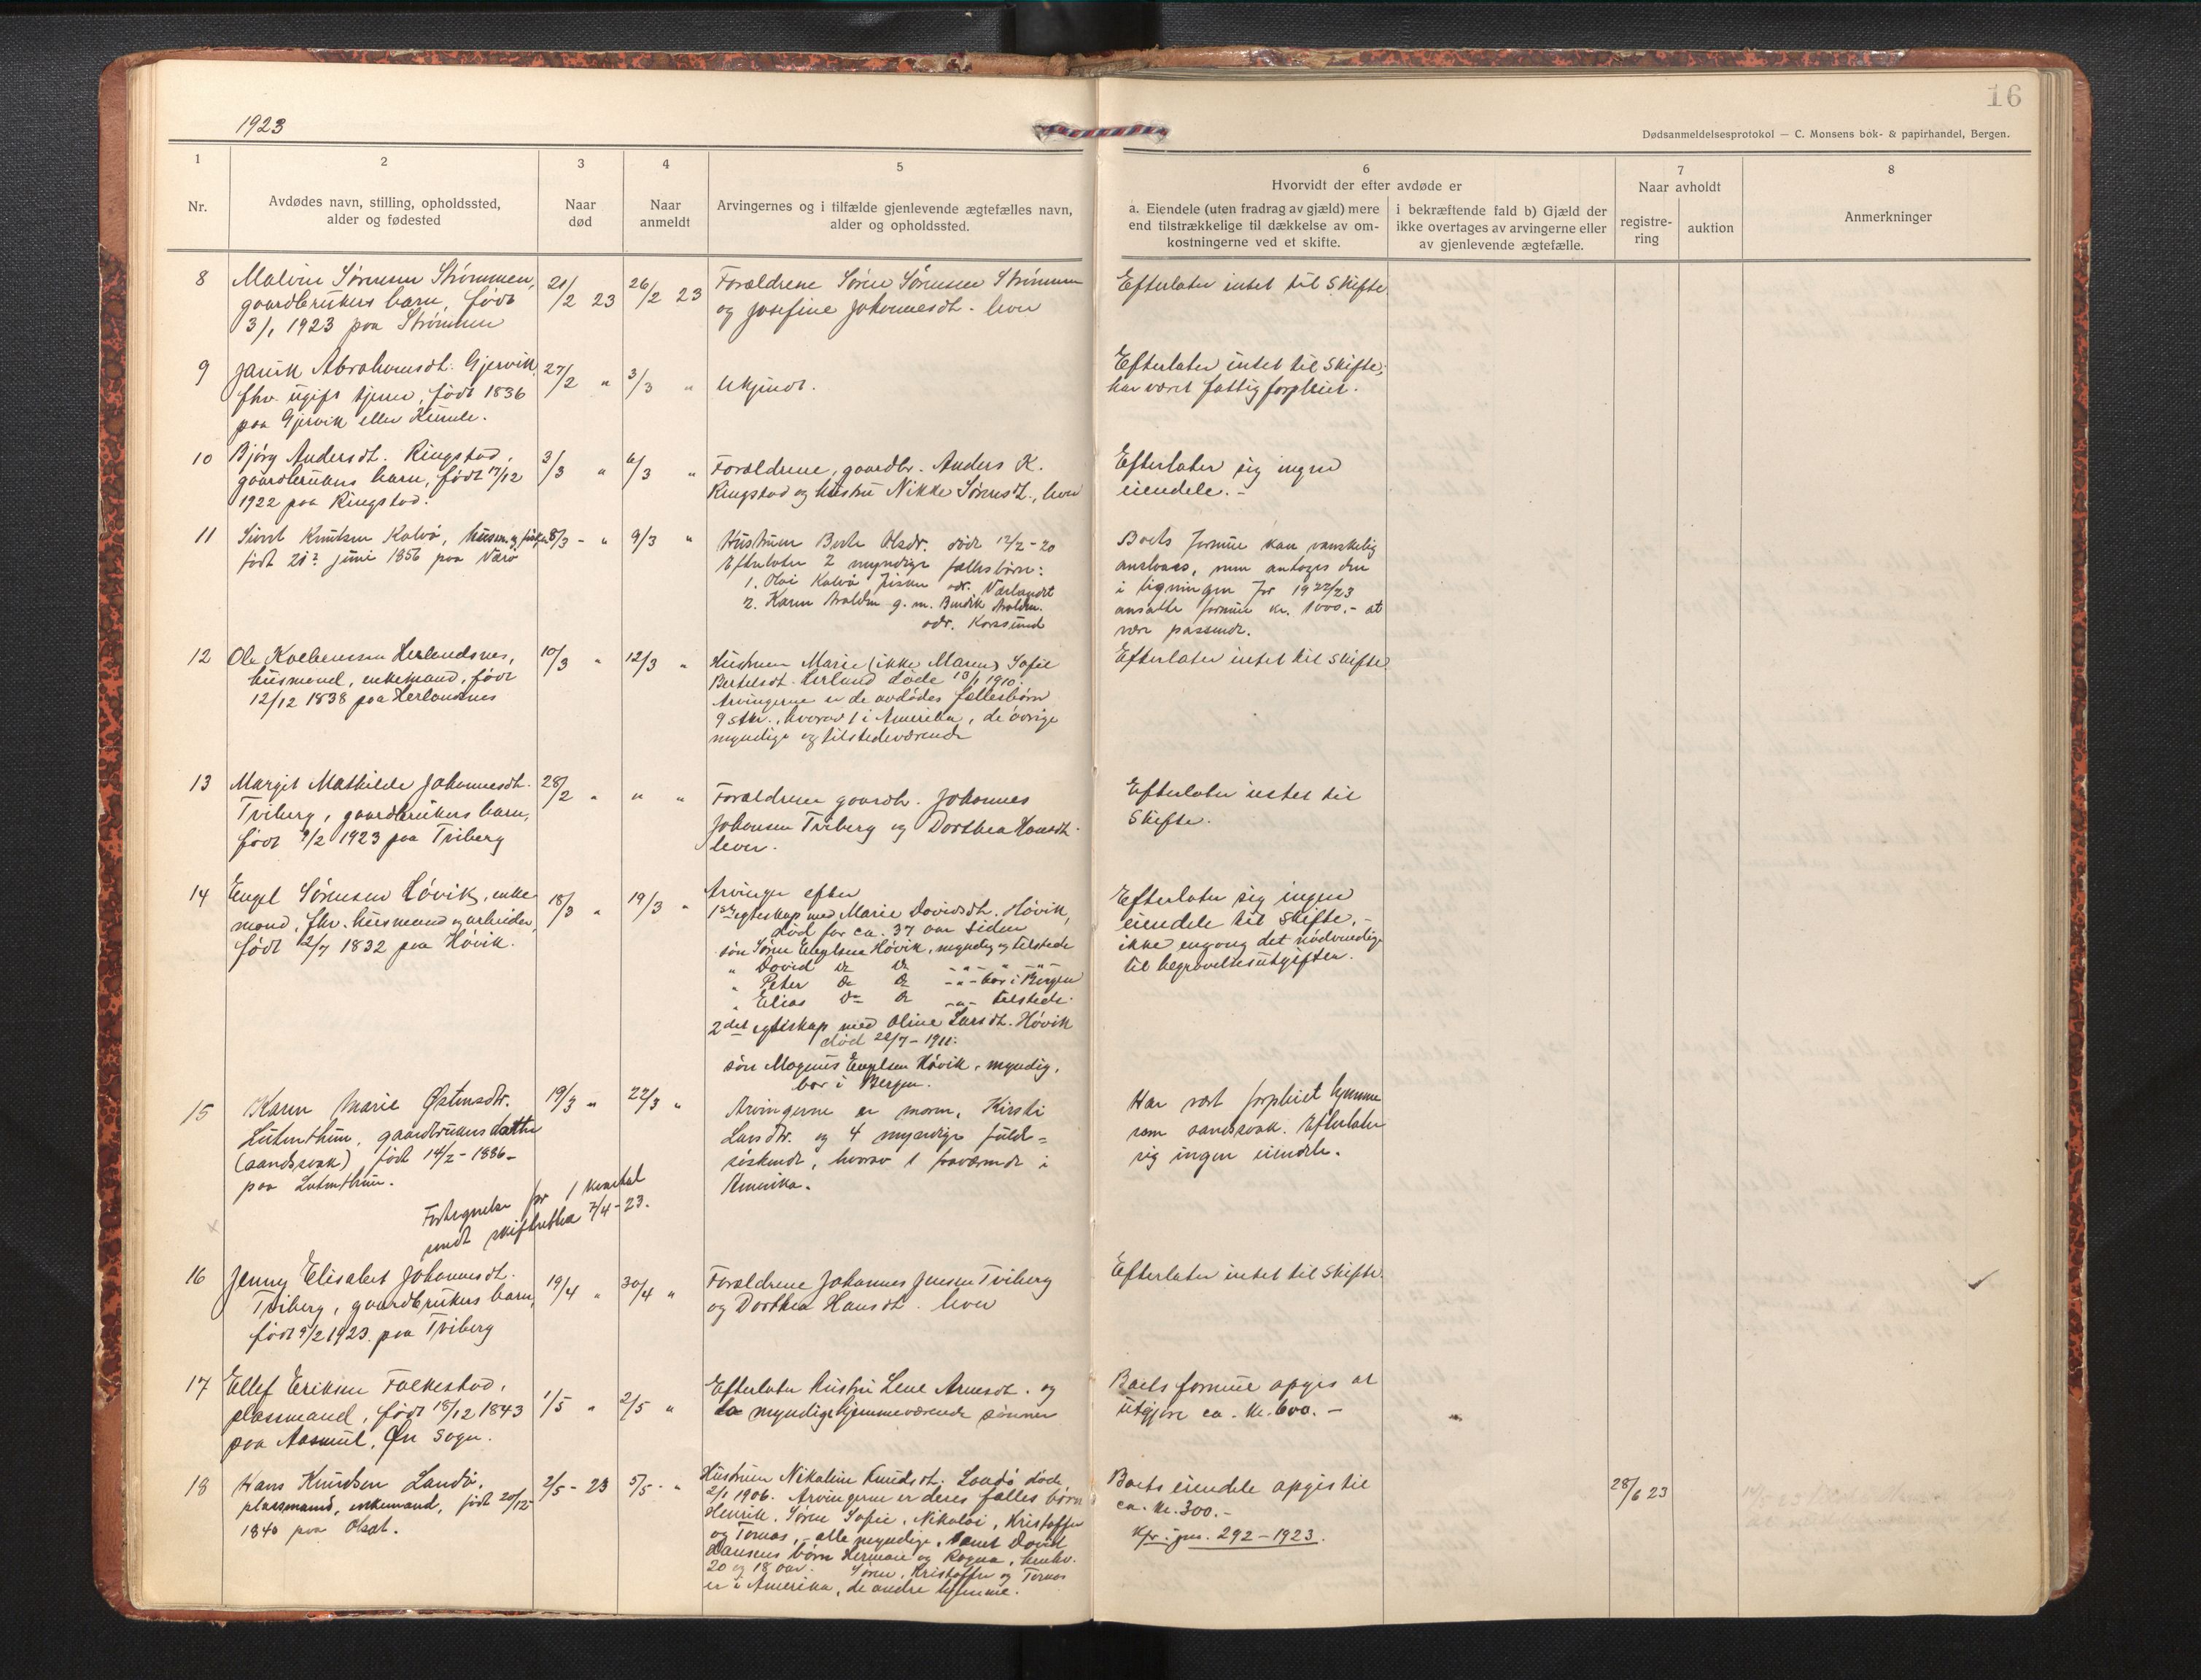 1923
16
Dødsanmeldelsesprotokol — C. Monsens bok- & papirhandel, Bergen.
1
Nr.
2
Avdødes navn, stilling, opholdssted,
alder og fødested
3
Naar
død
4
Naar
anmeldt
5
Arvingernes og i tilfælde gjenlevende ægtefælles navn,
alder og opholdssted.
6
Hvorvidt der efter avdøde er
a. Eiendele (uten fradrag av gjæld) mere
end tilstrækkelige til dækkelse av om-
kostningerne ved et skifte.
i bekræftende fald b) Gjæld der
ikke overtages av arvingerne eller
av gjenlevende ægtefælle.
7
Naar avholdt
registre-
ring
auktion
8
Anmerkninger
8
Malvin Sørensen Strømmen,
gaardbrukers barn, født
3/1 1923 paa Strømmen
21/2 23
26/2 23
Forældrene Søren Sørensen Strømmen
og Josefine Johannesdt. lever
Efterlater intet til Skifte
9
Abrahamsdt. Gjervik
fhv. ugift tjener, født 1836
paa Gjervik eller
27/2 "
3/3 "
Ukjendt.
Efterlater intet til Skifte,
har været fattigforpleiet.
10
Bjørg Andersdt. Ringstad,
gaardbrukers barn, født 17/12
1922 paa Ringstad.
3/3 "
6/3 "
Forældrene, gaardbr. Anders K.
Ringstad og hustru Nikka Sørensdt., lever
Efterlater sig ingen
eiendele. -
11
Sivert Knutsen Kalvø, husm. og fisker
født 21de juni 1856 paa Værø
8/3 - "
9/3 "
Hustruen Berte Olsdr. døde 12/2 - 20
Efterlater 2 myndige fællesbørn:
1. Olai Kalvø fisker adr. Værlandet
2. Karen g. m. Bendik
adr. Korssund
Boets formue kan vanskelig
ansættes, men antages den
i ligningen for 1922/23
ansatte formue kr. 1000.- at
være passende.
12
Ole Herlandsnes,
husmand, enkemand, født
12/12 1838 paa Herlandsnes
10/3 "
12/3 "
Hustruen Marie (ikke Maren) Sofie
Bertelsdt. Herland døde 13/1 1910.
Arvingerne er de avdødes fællesbørn
9 stkr., hvorav 1 i Amerika, de øvrige
myndige og tilstedeværende
Efterlater intet til Skifte
13
Margit Mathilde Johannesdt.
Tviberg, gaardbrukers barn,
født 9/2 1923 paa Tviberg
28/2 "
" "
Forældrene gaardbr. Johannes
Johansen Tviberg og Dorthea Hansdt.
lever.
Efterlater intet til
Skifte.
14
Engel Sørensen Høvik, enke-
mand, fhv. husmand og arbeider,
født 12/7 1832 paa Høvik.
18/3 "
19/3 "
Arvinger efter
1ste egteskap med Marie Davidsdt. Høvik,
død for ca. 37 aar siden
søn Søren Engelsen Høvik, myndig og tilstede
" David do do -"- -"-
" Peter do do -"- bor i Bergen
" Elias do do -"- tilstede.
2det egteskap med Oline Larsdt. Høvik
død 22/7 - 1911:
søn Magnus Engelsen Høvik, myndig,
bor i Bergen.
Efterlater sig ingen
eiendele til Skifte, -
ikke engang det nødvendige
til begravelsesutgifter.
15
Karen Marie Østensdtr.
gaardbrukers datter
(aandssvak) født 14/2 - 1886 -
paa
19/3 "
22/3 "
Arvingerne er moren, Kirsti
Larsdtr. og 4 myndige full-
søskende, hvorav 1 fraværende i
Amerika.
Har vært forpleiet hjemme
som aandssvak. Efterlater
sig ingen eiendele.
Fortegnelse for 1 kvartal
sendt skifteretten 7/4 - 23.
16
Jenny Elisabet Johannesdt.
Tviberg, gaardbrukers barn,
født 9/2 1923 paa Tviberg
19/4 "
30/4 "
Forældrene Johannes Jensen Tviberg
og Dorthea Hansdt. lever
Efterlater intet til Skifte.
17
Ellef Eriksen Folkestad,
plassmand, født 18/12 1843
paa Aasmul, Øn Sogn.
1/5 "
2/5 "
Efterlater hustru Lene Arnesdt. og
to myndige hjemmeværende sønner
Boets formue opgis at
utgjøre ca. kr. 600. -
18
Hans Knudsen Landø,
plassmand, enkemand, født 20/12
1840 paa Olset.
2/5 - 23
5/5 - "
Hustruen Nikoline Knudsdt. Landø døde
2/1 1906. Arvingerne er deres fælles børn
Henrik, Søren Sofie, Nikolai, Kristoffer
og Tomas, - alle myndige, samt David
Hansens børn Herman og Ragna, henhv.
20 og 18 aar. Søren, Kristoffer og Tomas
er i Amerika, de andre hjemme.
Boets eiendele opgis til
ca. kr. 300.-
Kfr. jnr. 292 - 1923.
28/6 23